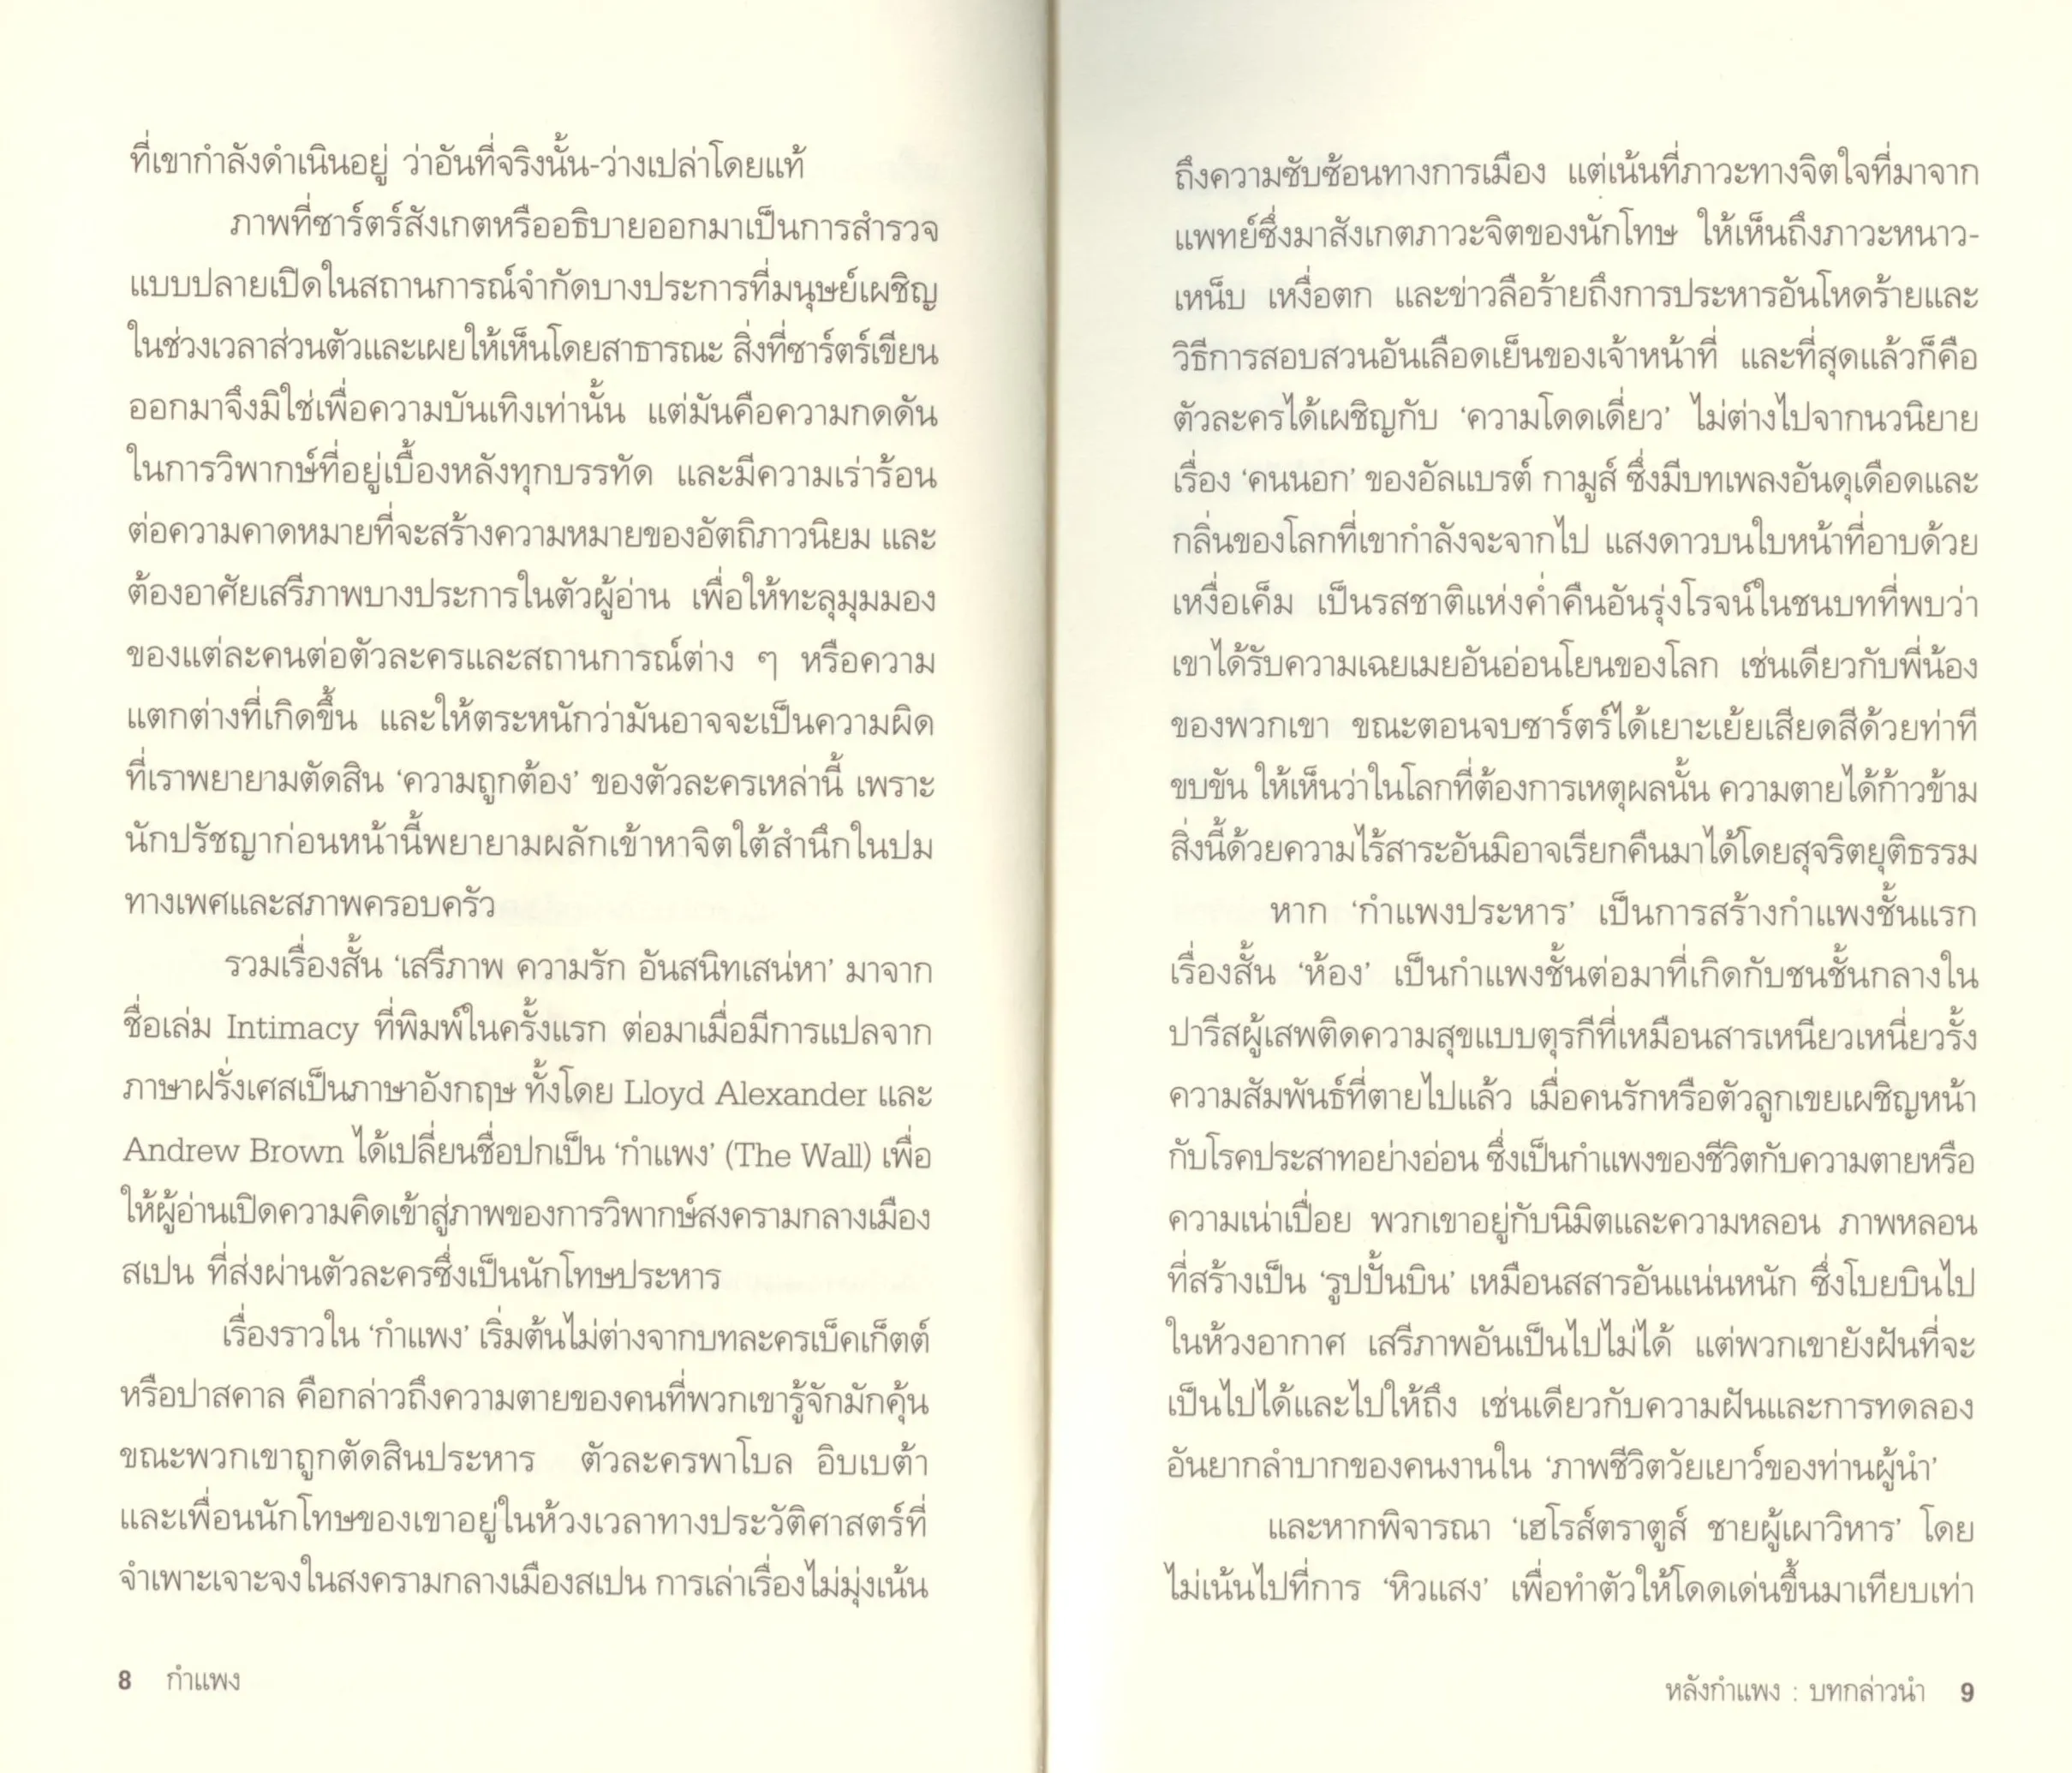 ที่เขากำลังดำเนินอยู่ ว่าอันที่จริงนั้น-ว่างเปล่าโดยแท้
ภาพที่ซาร์ตร์สังเกตหรืออธิบายออกมาเป็นการสำรวจ
แบบปลายเปิดในสถานการณ์จำกัดบางประการที่มนุษย์เผชิญ
ในช่วงเวลาส่วนตัวและเผยให้เห็นโดยสาธารณะ สิ่งที่ซาร์ตร์เขียน
ออกมาจึงมิใช่เพื่อความบันเทิงเท่านั้น แต่มันคือความกดดัน
ในการวิพากษ์ที่อยู่เบื้องหลังทุกบรรทัด และมีความเร่าร้อน
ต่อความคาดหมายที่จะสร้างความหมายของอัตถิภาวนิยม และ
ต้องอาศัยเสรีภาพบางประการในตัวผู้อ่าน เพื่อให้ทะลุมุมมอง
ของแต่ละคนต่อตัวละครและสถานการณ์ต่าง ๆ หรือความ
แตกต่างที่เกิดขึ้น และให้ตระหนักว่ามันอาจจะเป็นความผิด
ที่เราพยายามตัดสิน ‘ความถูกต้อง’ ของตัวละครเหล่านี้ เพราะ
นักปรัชญาก่อนหน้านี้พยายามผลักเข้าหาจิตใต้สำนึกในปม
ทางเพศและสภาพครอบครัว
รวมเรื่องสั้น ‘เสรีภาพ ความรัก อันสนิทเสน่หา’ มาจาก
ชื่อเล่ม Intimacy ที่พิมพ์ในครั้งแรก ต่อมาเมื่อมีการแปลจาก
ภาษาฝรั่งเศสเป็นภาษาอังกฤษ ทั้งโดย Lloyd Alexander และ
Andrew Brown ได้เปลี่ยนชื่อปกเป็น ‘กำแพง’ (The Wall) เพื่อ
ให้ผู้อ่านเปิดความคิดเข้าสู่ภาพของการวิพากษ์สงครามกลางเมือง
สเปน ที่ส่งผ่านตัวละครซึ่งเป็นนักโทษประหาร
เรื่องราวใน ‘กำแพง’ เริ่มต้นไม่ต่างจากบทละครเบ็คเก็ตต์
หรือปาสคาล คือกล่าวถึงความตายของคนที่พวกเขารู้จักมักคุ้น
ขณะพวกเขาถูกตัดสินประหาร ตัวละครพาโบล อิบเบต้า
และเพื่อนนักโทษของเขาอยู่ในห้วงเวลาทางประวัติศาสตร์ที่
จำเพาะเจาะจงในสงครามกลางเมืองสเปน การเล่าเรื่องไม่มุ่งเน้น
8 กำแพง
ถึงความซับซ้อนทางการเมือง แต่เน้นที่ภาวะทางจิตใจที่มาจาก
แพทย์ซึ่งมาสังเกตภาวะจิตของนักโทษ ให้เห็นถึงภาวะหนาว-
เหน็บ เหงื่อตก และข่าวลือร้ายถึงการประหารอันโหดร้ายและ
วิธีการสอบสวนอันเลือดเย็นของเจ้าหน้าที่ และที่สุดแล้วก็คือ
ตัวละครได้เผชิญกับ ‘ความโดดเดี่ยว’ ไม่ต่างไปจากนวนิยาย
เรื่อง ‘คนนอก’ ของอัลแบรต์ กามูส์ ซึ่งมีบทเพลงอันดุเดือดและ
กลิ่นของโลกที่เขากำลังจะจากไป แสงดาวบนใบหน้าที่อาบด้วย
เหงื่อเค็ม เป็นรสชาติแห่งค่ำคืนอันรุ่งโรจน์ในชนบทที่พบว่า
เขาได้รับความเฉยเมยอันอ่อนโยนของโลก เช่นเดียวกับพี่น้อง
ของพวกเขา ขณะตอนจบซาร์ตร์ได้เยาะเย้ยเสียดสีด้วยท่าที
ขบขัน ให้เห็นว่าในโลกที่ต้องการเหตุผลนั้น ความตายได้ก้าวข้าม
สิ่งนี้ด้วยความไร้สาระอันมิอาจเรียกคืนมาได้โดยสุจริตยุติธรรม
หาก ‘กำแพงประหาร’ เป็นการสร้างกำแพงชั้นแรก
เรื่องสั้น ‘ห้อง’ เป็นกำแพงชั้นต่อมาที่เกิดกับชนชั้นกลางใน
ปารีสผู้เสพติดความสุขแบบตุรกีที่เหมือนสารเหนียวเหนี่ยวรั้ง
ความสัมพันธ์ที่ตายไปแล้ว เมื่อคนรักหรือตัวลูกเขยเผชิญหน้า
กับโรคประสาทอย่างอ่อน ซึ่งเป็นกำแพงของชีวิตกับความตายหรือ
ความเน่าเปื่อย พวกเขาอยู่กับนิมิตและความหลอน ภาพหลอน
ที่สร้างเป็น ‘รูปปั้นบิน’ เหมือนสสารอันแน่นหนัก ซึ่งโบยบินไป
ในห้วงอากาศ เสรีภาพอันเป็นไปไม่ได้ แต่พวกเขายังฝันที่จะ
เป็นไปได้และไปให้ถึง เช่นเดียวกับความฝันและการทดลอง
อันยากลำบากของคนงานใน ‘ภาพชีวิตวัยเยาว์ของท่านผู้นำ’
และหากพิจารณา ‘เฮโรส์ตราตูส์ ชายผู้เผาวิหาร’ โดย
ไม่เน้นไปที่การ ‘หิวแสง’ เพื่อทำตัวให้โดดเด่นขึ้นมาเทียบเท่า
หลังกำแพง : บทกล่าวนำ 9